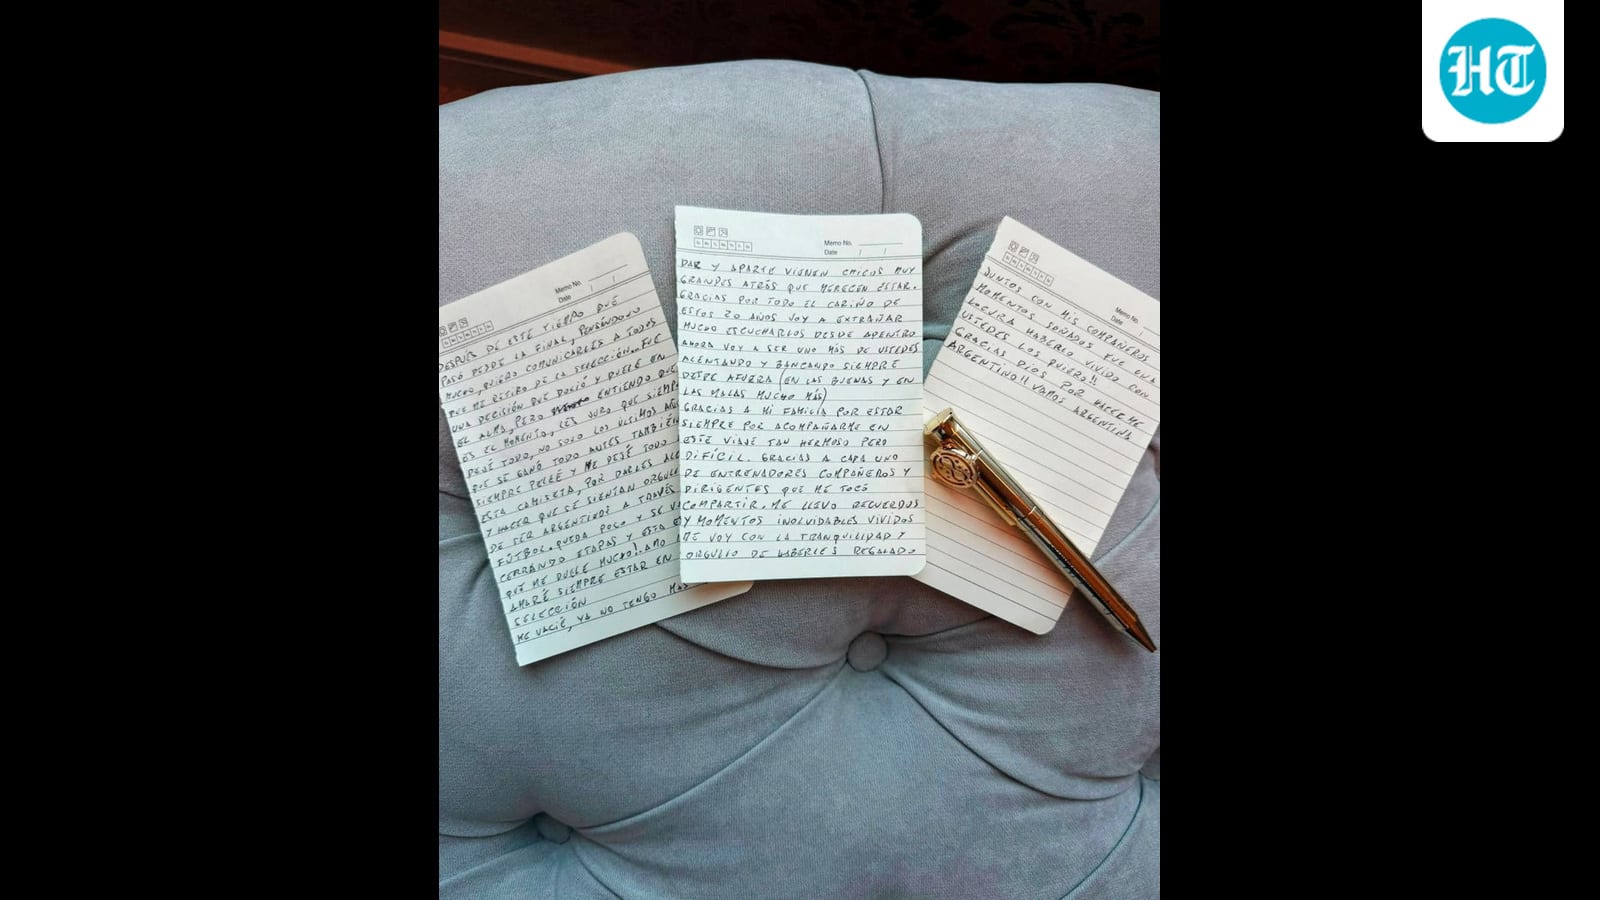 HT
Memo No.
Date / /
DESPUÉS DE ESTE TIEMPO QUE
PASÓ DESDE LA FINAL, PENSÁNDOLO
MUCHO, QUIERO COMUNICARLES A TODOS
QUE ME RETIRO DE LA SELECCIÓN. FUE
UNA DECISIÓN QUE DOLIÓ Y DUELE EN
EL ALMA, PERO ENTIENDO QUE
ES EL MOMENTO, LES JURO QUE SIEMP
DEJÉ TODO, NO SOLO LOS ÚLTIMOS AÑOS
QUE SE GANÓ TODO ANTES TAMBIÉN
SIEMPRE PELEÉ Y ME DEJÉ TODO
ESTA CAMISETA, POR DARLES ALE
Y HACER QUE SE SIENTAN ORGULL
DE SER ARGENTINOS A TRAVÉS
FÚTBOL. QUEDA POCO Y SE VA
CERRANDO ETAPAS Y ESTA E
QUE ME DUELE MUCHO! AMO
AMARÉ SIEMPRE ESTAR EN
SELECCIÓN
ME VACIÉ, YA NO TENGO MÁS
Memo No.
Date / /
DAR Y APARTE VIENEN CHICOS MUY
GRANDES ATRÁS QUE MERECEN ESTAR.
GRACIAS POR TODO EL CARIÑO DE
ESTOS 20 AÑOS VOY A EXTRAÑAR
MUCHO ESCUCHARLOS DESDE ADENTRO
AHORA VOY A SER UNO MÁS DE USTEDES
ALENTANDO Y BANCANDO SIEMPRE
DESDE AFUERA (EN LAS BUENAS Y EN
LAS MALAS MUCHO MÁS)
GRACIAS A MI FAMILIA POR ESTAR
SIEMPRE POR ACOMPAÑARME EN
ESTE VIAJE TAN HERMOSO PERO
DIFÍCIL. GRACIAS A CADA UNO
DE ENTRENADORES COMPAÑEROS Y
DIRIGENTES QUE ME TOCÓ
COMPARTIR. ME LLEVO RECUERDOS
Y MOMENTOS INOLVIDABLES VIVIDOS
ME VOY CON LA TRANQUILIDAD Y
ORGULLO DE HABERLES REGALADO
Memo No.
Date /
JUNTOS CON MIS COMPAÑEROS
MOMENTOS SOÑADOS FUE UNA
LOCURA HABERLO VIVIDO CON
USTEDES LOS QUIERO!!
GRACIAS DIOS POR HACERME
ARGENTINO!! VAMOS ARGENTINA